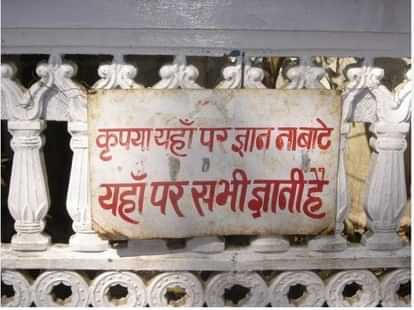 कृपया यहाँ पर ज्ञान ना बाटे
यहाँ पर सभी ज्ञानी हैं